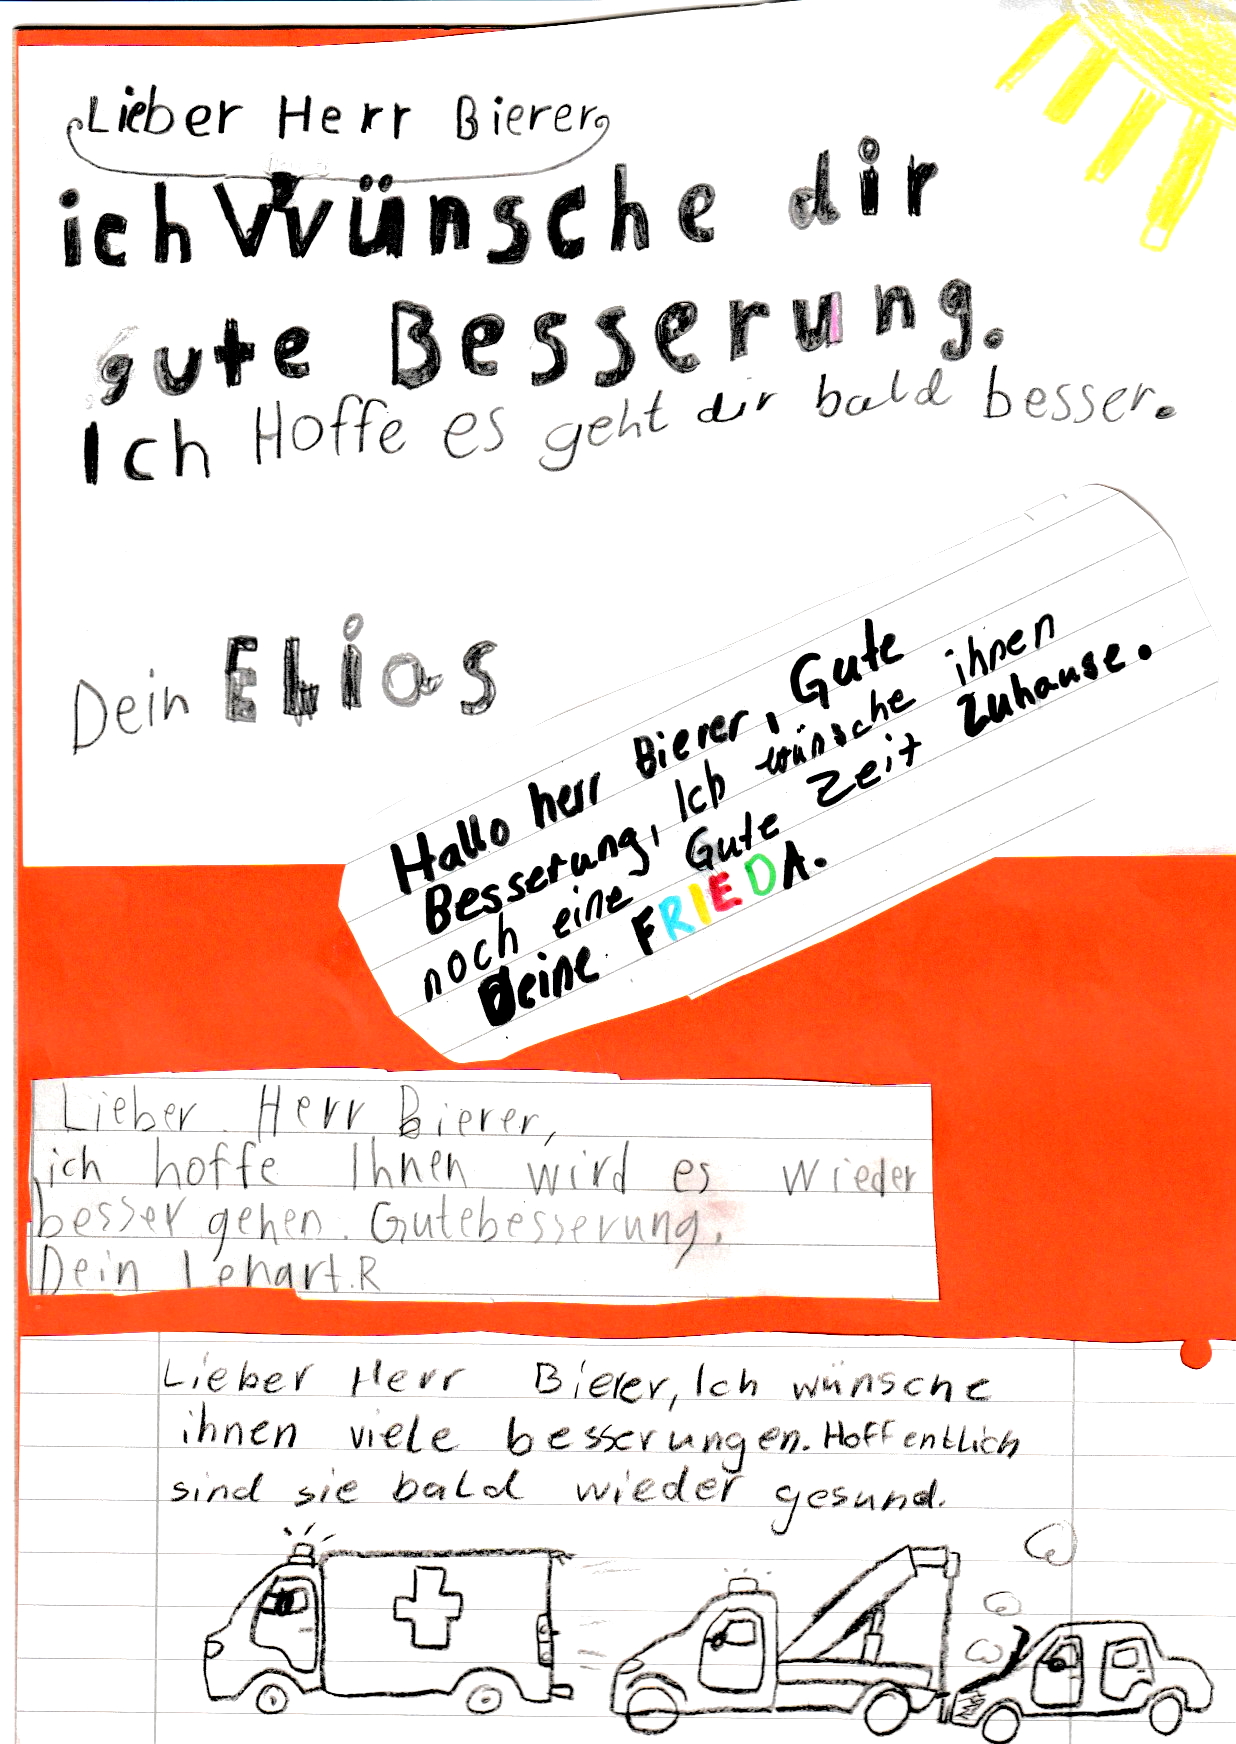 Lieber Herr Bierer
ich Wünsche dir
gute Besserung.
Ich Hoffe es geht dir bald besser.
Dein ELias
Hallo herr Bierer, Gute
Besserung, Ich wünsche ihnen
noch eine Gute Zeit Zuhause.
Deine FRIEDA.
Lieber Herr Bierer,
ich hoffe Ihnen wird es wieder
besser gehen. Gutebesserung.
Dein Lenart.R
Lieber Herr Bierer, Ich wünsche
ihnen viele besserungen. Hoffentlich
sind sie bald wieder gesund.